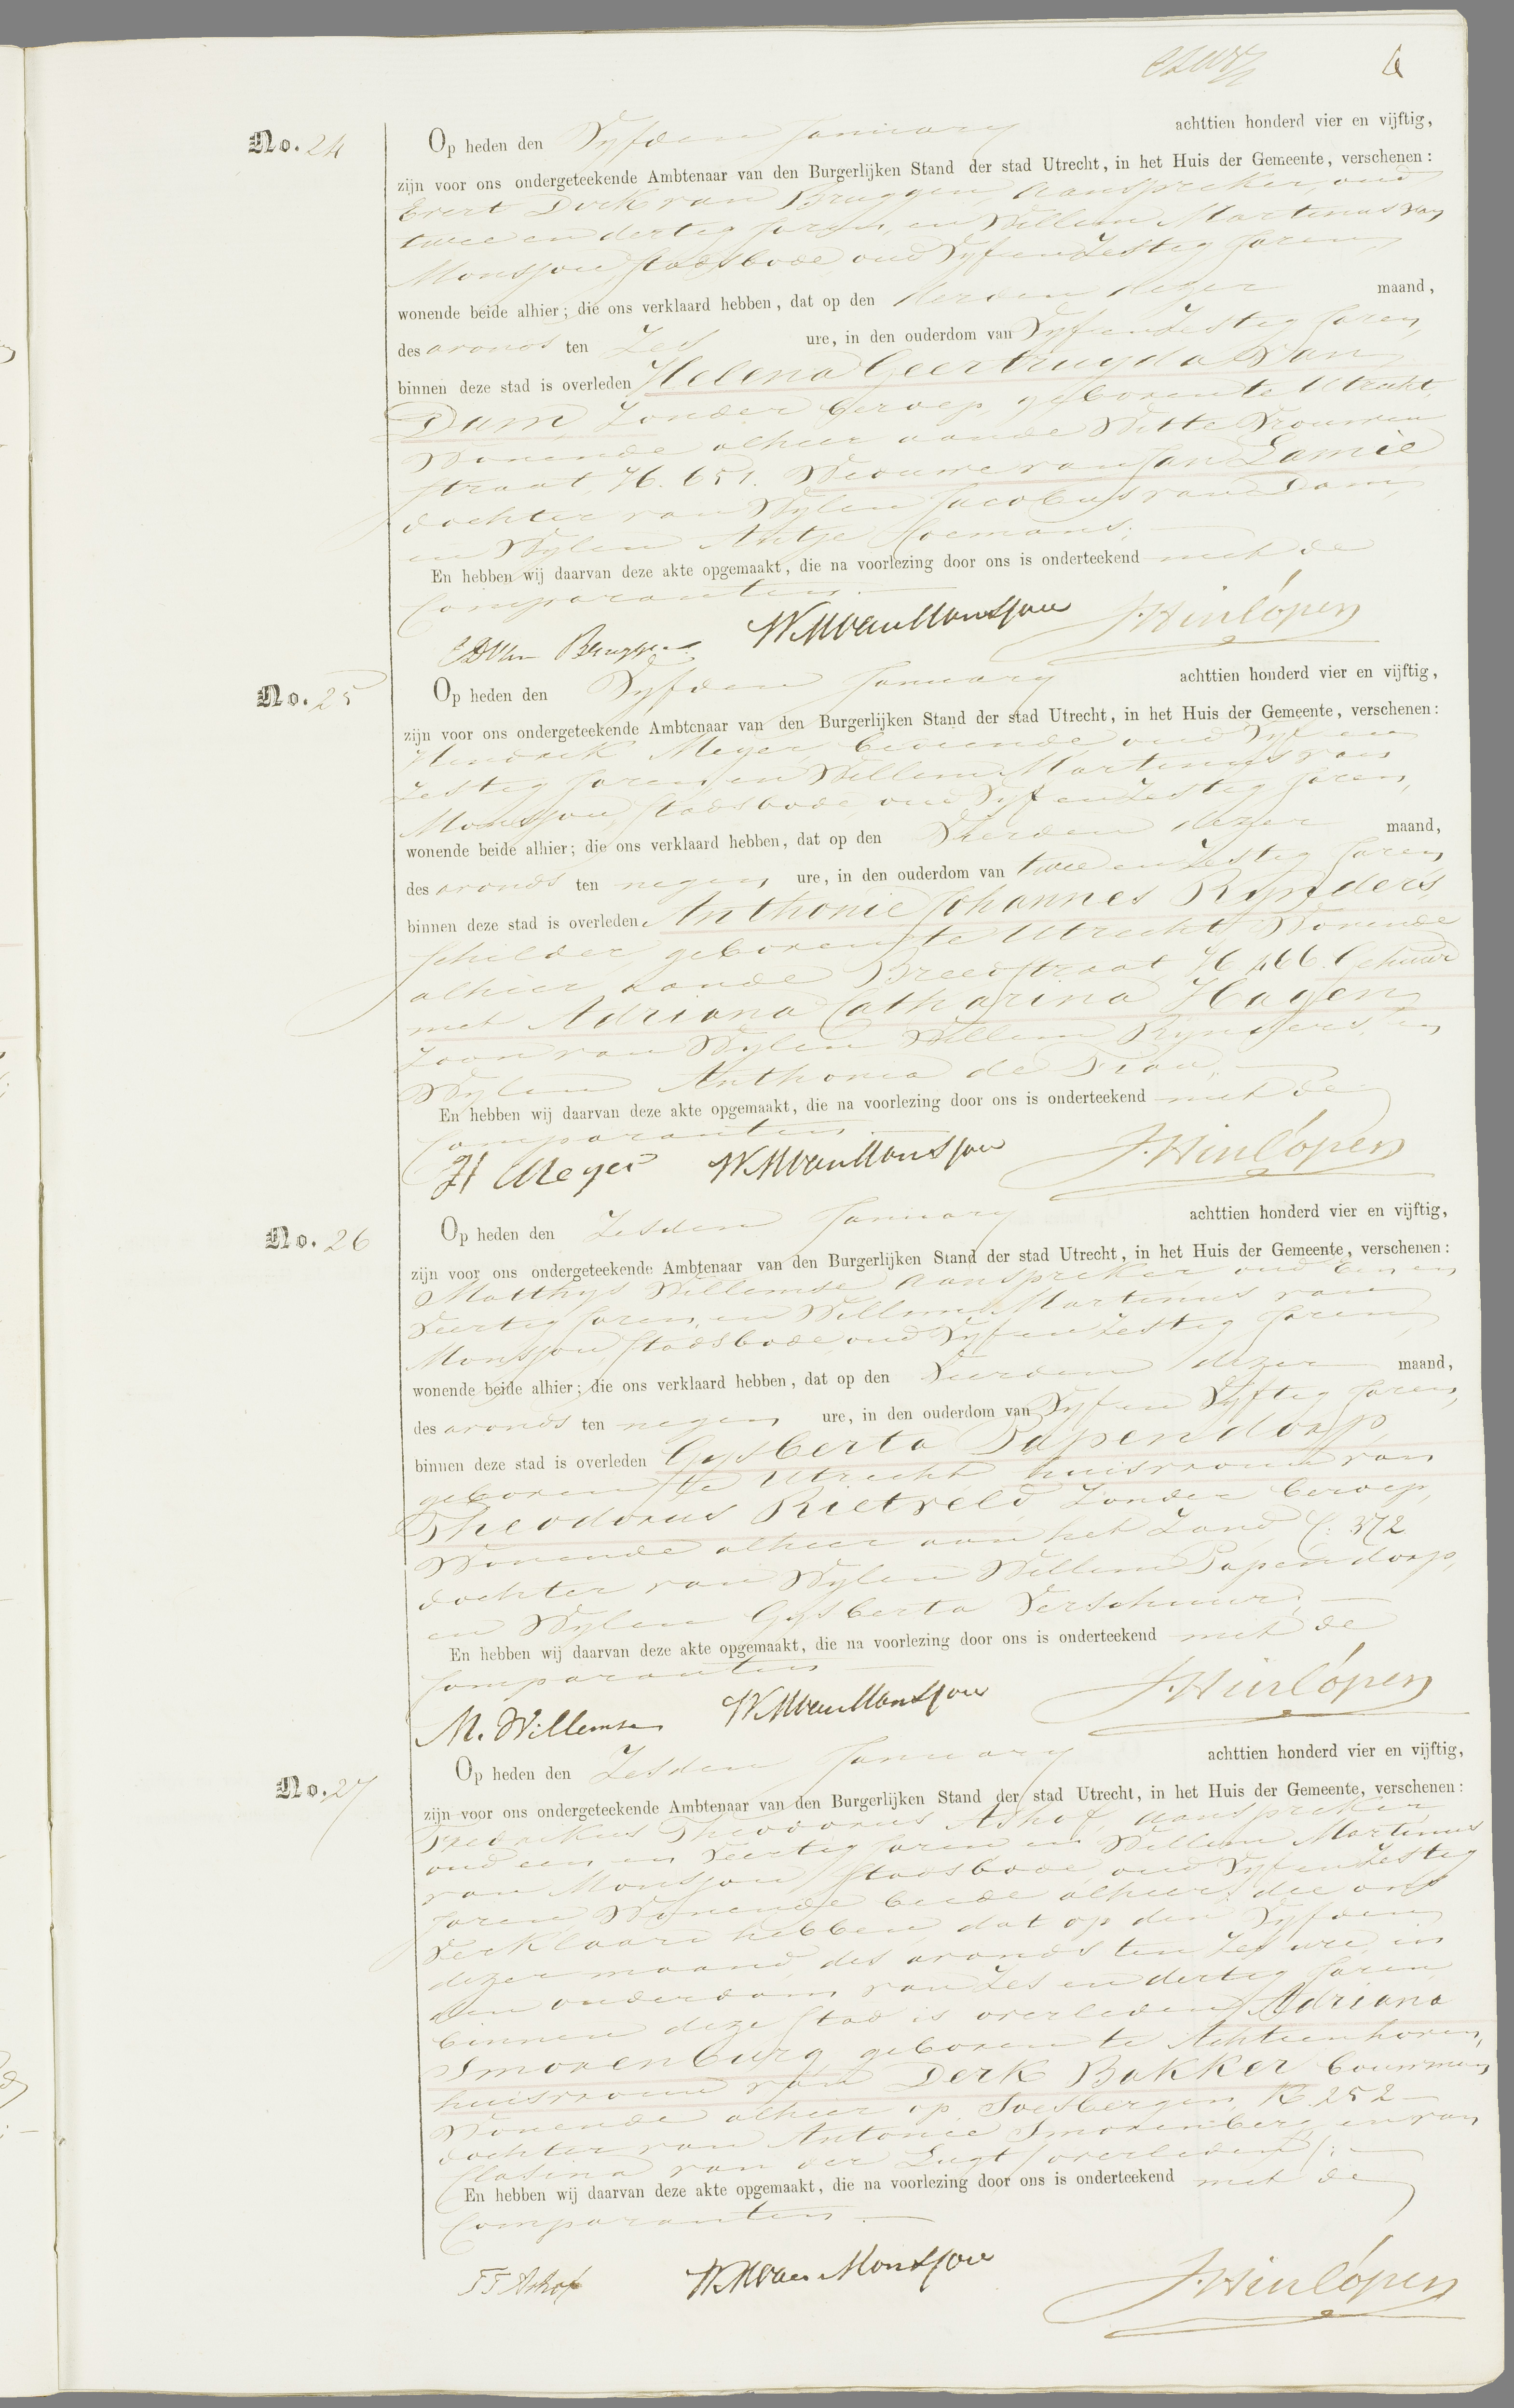 6
No. 24
Op heden den Vyfden January achttien honderd vier en vijftig,
zijn voor ons ondergeteekende Ambtenaar van den Burgerlijken Stand der stad Utrecht, in het Huis der Gemeente, verschenen:
Evert Dirk van Bruggen, aanspreker, oud
twee en dertig Jaren, en Willem Martinus van
Monsjou, Stadsbode, oud Vyf en Zestig Jaren,
wonende beide alhier; die ons verklaard hebben, dat op den derden dezer maand,
des avonds ten Zes ure, in den ouderdom van Vyf en Zestig Jaren,
binnen deze stad is overleden Helena Geertruyda van
Dam, Zonder beroep, geboren te Utrecht,
Wonende alhier aan de Witte Vrouwen
straat, H. 651. Weduwe van Jan Lamie
dochter van Wylen Jacobus van Dam,
en Wylen Antje
En hebben wij daarvan deze akte opgemaakt, die na voorlezing door ons is onderteekend met de
Comparanten.
EDVan Bruggen WMvanMonsjou J. Hinlópen
No. 25
Op heden den Vyfden January achttien honderd vier en vijftig,
zijn voor ons ondergeteekende Ambtenaar van den Burgerlijken Stand der stad Utrecht, in het Huis der Gemeente, verschenen:
Hendrik Meyer, bediende, oud Vyf en
Zestig Jaren, en Willem Martinus van
Monsjou, Stadsbode, oud Vyf en Zestig Jaren,
wonende beide alhier; die ons verklaard hebben, dat op den Vierden dezer maand,
des avonds ten negen ure, in den ouderdom van twee en Zestig Jaren,
binnen deze stad is overleden Anthonie Johannes Rynders,
Schilder, geboren te Utrecht, Wonende
alhier aan de Breedstraat, H 466. Gehuwd
met Adriana Catharina Hagen,
Zoon van Wylen Willem Rynders, en
Wylen Anthonia de
En hebben wij daarvan deze akte opgemaakt, die na voorlezing door ons is onderteekend met de
Comparanten.
H Meyer WMvanMonsjou J. Hinlópen
No. 26
Op heden den Zesden January achttien honderd vier en vijftig,
zijn voor ons ondergeteekende Ambtenaar van den Burgerlijken Stand der stad Utrecht, in het Huis der Gemeente, verschenen:
Matthys Willemse aanspreker, oud Een en
Veertig Jaren, en Willem Martinus van
Monsjou, Stadsbode, oud Vyf en Zestig Jaren,
wonende beide alhier; die ons verklaard hebben, dat op den Vierden dezer maand,
des avonds ten negen ure, in den ouderdom van Vyf en Vyftig Jaren,
binnen deze stad is overleden Gysberta Papendorp,
geboren te Utrecht, huisvrouw van
Theodorus Rietveld, Zonder beroep,
Wonende alhier aan het Zand, C. 372
dochter van Wylen Willem Papendorp,
en Wylen Gysberta Verschuur,
En hebben wij daarvan deze akte opgemaakt, die na voorlezing door ons is onderteekend met de
Comparanten
M. Willemse WMvanMonsjou J. Hinlópen
No. 27
Op heden den Zesden January achttien honderd vier en vijftig,
zijn voor ons ondergeteekende Ambtenaar van den Burgerlijken Stand der stad Utrecht, in het Huis der Gemeente, verschenen:
Fredrikus Theodorus Ashof, aanspreker,
oud een en Veertig Jaren en Willem Martinus
van Monsjou, Stadsbode, oud Vyf en Zestig
Jaren, Wonende beide alhier, die ons
Verklaard hebben, dat op den Vyfden
dezer maand, des avonds ten Zes ure, in
den ouderdom van Zes en dertig Jaren,
binnen deze Stad is overleden Adriana
Smorenburg, geboren te Achtienhoven,
huisvrouw van Derk Bakker, bouwman,
Wonende alhier op Soesbergen, K. 252
dochter van Antonie Smorenberg, en van
Clasina van der Lugt (overleden).
En hebben wij daarvan deze akte opgemaakt, die na voorlezing door ons is onderteekend met de
Comparanten.
FT Ashof WMvanMonsjou J. Hinlópen